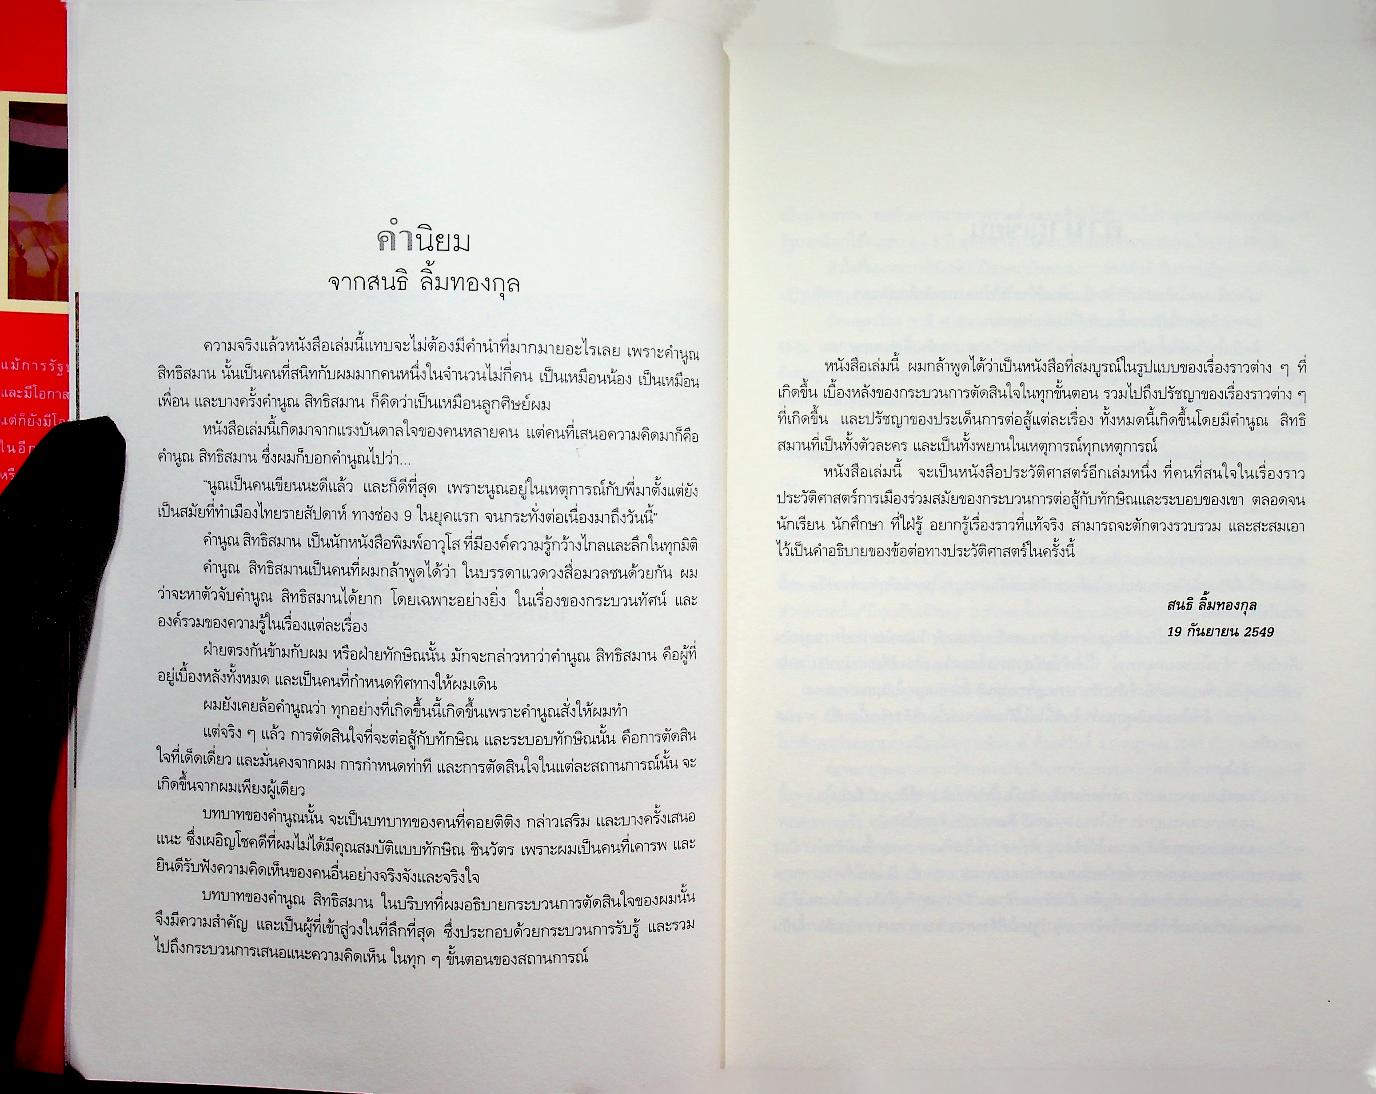 แม้การรัฐ
และมีโอกาส
แต่ก็ยังมีโอ
ในอีก
คำนิยม
จากสนธิ ลิ้มทองกุล
ความจริงแล้วหนังสือเล่มนี้แทบจะไม่ต้องมีคำนำที่มากมายอะไรเลย เพราะคำนูณ
สิทธิสมาน นั้นเป็นคนที่สนิทกับผมมากคนหนึ่งในจำนวนไม่กี่คน เป็นเหมือนน้อง เป็นเหมือน
เพื่อน และบางครั้งคำนูณ สิทธิสมาน ก็คิดว่าเป็นเหมือนลูกศิษย์ผม
หนังสือเล่มนี้เกิดมาจากแรงบันดาลใจของคนหลายคน แต่คนที่เสนอความคิดมาก็คือ
คำนูณ สิทธิสมาน ซึ่งผมก็บอกคำนูณไปว่า...
"นูณเป็นคนเขียนนะดีแล้ว และก็ดีที่สุด เพราะนูณอยู่ในเหตุการณ์กับพี่มาตั้งแต่ยัง
เป็นสมัยที่ทำเมืองไทยรายสัปดาห์ ทางช่อง 9 ในยุคแรก จนกระทั่งต่อเนื่องมาถึงวันนี้"
คำนูณ สิทธิสมาน เป็นนักหนังสือพิมพ์อาวุโส ที่มีองค์ความรู้กว้างไกลและลึกในทุกมิติ
คำนูณ สิทธิสมานเป็นคนที่ผมกล้าพูดได้ว่า ในบรรดาแวดวงสื่อมวลชนด้วยกัน ผม
ว่าจะหาตัวจับคำนูณ สิทธิสมานได้ยาก โดยเฉพาะอย่างยิ่ง ในเรื่องของกระบวนทัศน์ และ
องค์รวมของความรู้ในเรื่องแต่ละเรื่อง
ฝ่ายตรงกันข้ามกับผม หรือฝ่ายทักษิณนั้น มักจะกล่าวหาว่าคำนูณ สิทธิสมาน คือผู้ที่
อยู่เบื้องหลังทั้งหมด และเป็นคนที่กำหนดทิศทางให้ผมเดิน
ผมยังเคยล้อคำนูณว่า ทุกอย่างที่เกิดขึ้นนี้เกิดขึ้นเพราะคำนูณสั่งให้ผมทำ
แต่จริง ๆ แล้ว การตัดสินใจที่จะต่อสู้กับทักษิณ และระบอบทักษิณนั้น คือการตัดสิน
ใจที่เด็ดเดี่ยว และมั่นคงจากผม การกำหนดท่าที และการตัดสินใจในแต่ละสถานการณ์นั้น จะ
เกิดขึ้นจากผมเพียงผู้เดียว
บทบาทของคำนูณนั้น จะเป็นบทบาทของคนที่คอยติติง กล่าวเสริม และบางครั้งเสนอ
แนะ ซึ่งเผอิญโชคดีที่ผมไม่ได้มีคุณสมบัติแบบทักษิณ ชินวัตร เพราะผมเป็นคนที่เคารพ และ
ยินดีรับฟังความคิดเห็นของคนอื่นอย่างจริงจังและจริงใจ
บทบาทของคำนูณ สิทธิสมาน ในบริบทที่ผมอธิบายกระบวนการตัดสินใจของผมนั้น
จึงมีความสำคัญ และเป็นผู้ที่เข้าสู่วงในที่ลึกที่สุด ซึ่งประกอบด้วยกระบวนการรับรู้ และรวม
ไปถึงกระบวนการเสนอแนะความคิดเห็น ในทุก ๆ ขั้นตอนของสถานการณ์
หนังสือเล่มนี้ ผมกล้าพูดได้ว่าเป็นหนังสือที่สมบูรณ์ในรูปแบบของเรื่องราวต่าง ๆ ที่
เกิดขึ้น เบื้องหลังของกระบวนการตัดสินใจในทุกขั้นตอน รวมไปถึงปรัชญาของเรื่องราวต่าง ๆ
ที่เกิดขึ้น และปรัชญาของประเด็นการต่อสู้แต่ละเรื่อง ทั้งหมดนี้เกิดขึ้นโดยมีคำนูณ สิทธิ
สมานที่เป็นทั้งตัวละคร และเป็นทั้งพยานในเหตุการณ์ทุกเหตุการณ์
หนังสือเล่มนี้ จะเป็นหนังสือประวัติศาสตร์อีกเล่มหนึ่ง ที่คนที่สนใจในเรื่องราว
ประวัติศาสตร์การเมืองร่วมสมัยของกระบวนการต่อสู้กับทักษิณและระบอบของเขา ตลอดจน
นักเรียน นักศึกษา ที่ใฝ่รู้ อยากรู้เรื่องราวที่แท้จริง สามารถจะตักตวงรวบรวม และสะสมเอา
ไว้เป็นคำอธิบายของข้อต่อทางประวัติศาสตร์ในครั้งนี้
สนธิ ลิ้มทองกุล
19 กันยายน 2549